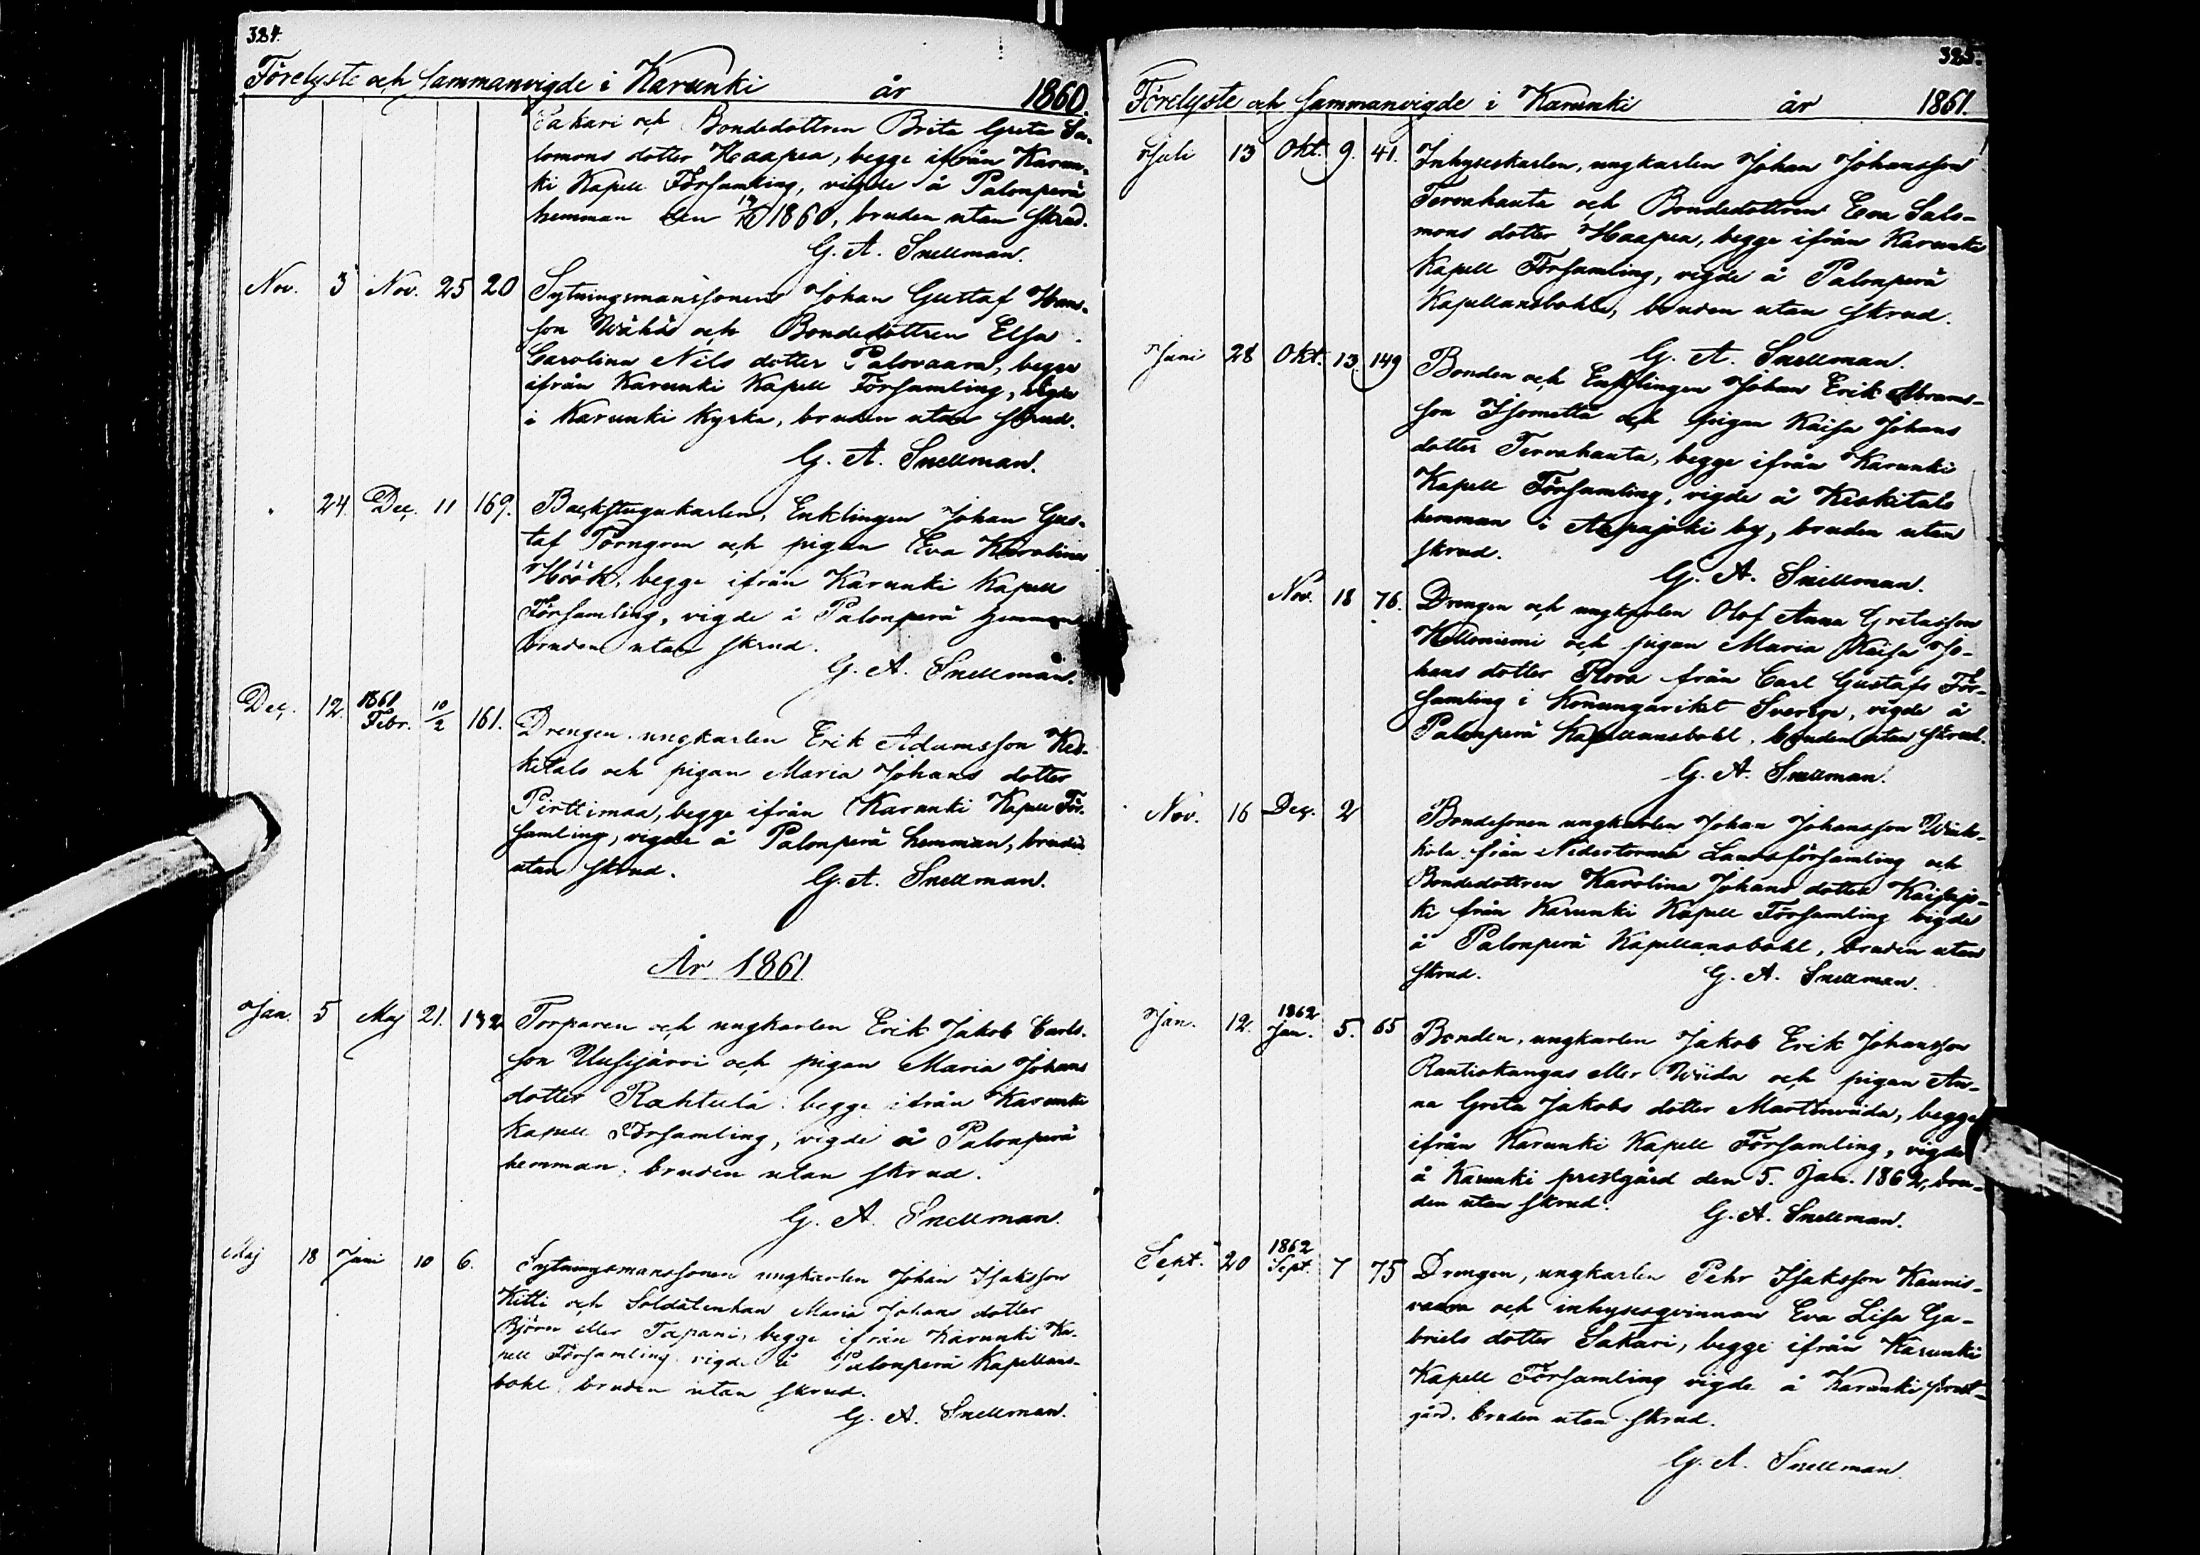 384.
Förelyste och Sammanvigde i Karunki år 1860.
Sakari och Bondedottren Brita Greta Sa-
lomons dotter Haapea, begge ifrån Karun-
ki Kapell Församling, vigde å Palonperä
hemman den 1860, bruden utan skrud.
G. A. Snellman.
Nov. 3 Nov. 25 20 Sytningsmanssonen Johan Gustaf Hans-
son och Bondedottren Elsa
Carolina Nils dotter Palovaara, begge
ifrån Karunki Kapell Församling, vigde
i Karunki Kyrka, bruden utan skrud.
G. A. Snellman.
" 24 Dec. 11 169. Backstugukarlen, Enklingen Johan Gus-
taf Törngren och pigan Eva Karolina
Höök, begge ifrån Karunki Kapell
Församling, vigde å Palonperä hemman
bruden utan skrud.
G. A. Snellman.
Dec. 12. 1861 Febr. 10/2 161. Drengen, ungkarlen Erik Adamsson Kes-
kitalo och pigan Maria Johans dotter
Pirttimaa, begge ifrån Karunki Kapell För-
samling, vigde å Palonperä hemman, bruden
utan skrud.
G. A. Snellman.
År 1861
Jan. 5 Maj 21. 132 Torparen och ungkarlen Erik Jakob Carls-
son Uusijärvi och pigan Maria Johans
dotter Rahtula begge ifrån Karunki
Kapell Församling, vigde å Palonperä
hemman, bruden utan skrud.
G. A. Snellman.
Maj 18 Juni 10 6. Sytningsmanssonen ungkarlen Johan Isaksson
Kitti och Soldatenkan Maria Johans dotter
Björn eller Tapani, begge ifrån Karunki Ka-
pell Församling, vigde å Palonperä Kapellans-
bohl, bruden utan skrud.
G. A. Snellman.
385.
Förelyste och Sammanvigde i Karunki år 1861.
Juli 13 Okt. 9. 41. Inhyseskarlen, ungkarlen Johan Johansson
Tervahauta och Bondedottren Eva Salo-
mons dotter Haapea, begge ifrån Karunki
Kapell Församling, vigde å Palonperä
Kapellansbohle, bruden utan skrud.
G. A. Snellman.
Juni 28 Okt. 13. 149 Bonden och Enklingen Johan Erik Abrams-
son Isometta och pigan Kaisa Johans
dotter Tervahauta, begge ifrån Karunki
Kapell Församling, vigde å Keskitalo
hemman i Aapajoki by, bruden utan
skrud.
G. A. Snellman.
Nov. 18 76. Drengen och ungkarlen Olof Anna Gretasson
Kelloniemi och pigan Maria Kaisa Jo-
hans dotter Rova från Carl Gustafs För-
samling i Konungariket Sverige, vigde å
Palonperä Kapellansbohl, bruden utan skrud.
G. A. Snellman.
Nov. 16 Dec. 2 Bondesonen ungkarlen Johan Johansson
från Nedertorneå Landsförsamling och
Bondedottren Karolina Johans dotter Kaisajo-
ki från Karunki Kapell Församling vigde
å Palonperä Kapellansbohl, bruden utan
skrud.
G. A. Snellman.
Jan. 12. 1862 Jan. 5. 65 Bonden, ungkarlen Jakob Erik Johansson
Rautiokangas eller Wiida och pigan An-
na Greta Jakobs dotter Martinwiida, begge
ifrån Karunki Kapell Församling, vigde
å Karunki prestgård den 5. Jan. 1862, bru-
den utan skrud.
G. A. Snellman.
Sept. 20 1862 Sept. 7 75 Drengen, ungkarlen Pehr Isaksson Kaunis-
vaara och inhysesqvinnan Eva Lisa Ga-
briels dotter Sakari, begge ifrån Karunki
Kapell Församling vigde å Karunki prest-
gård. bruden utan skrud.
G. A. Snellman.